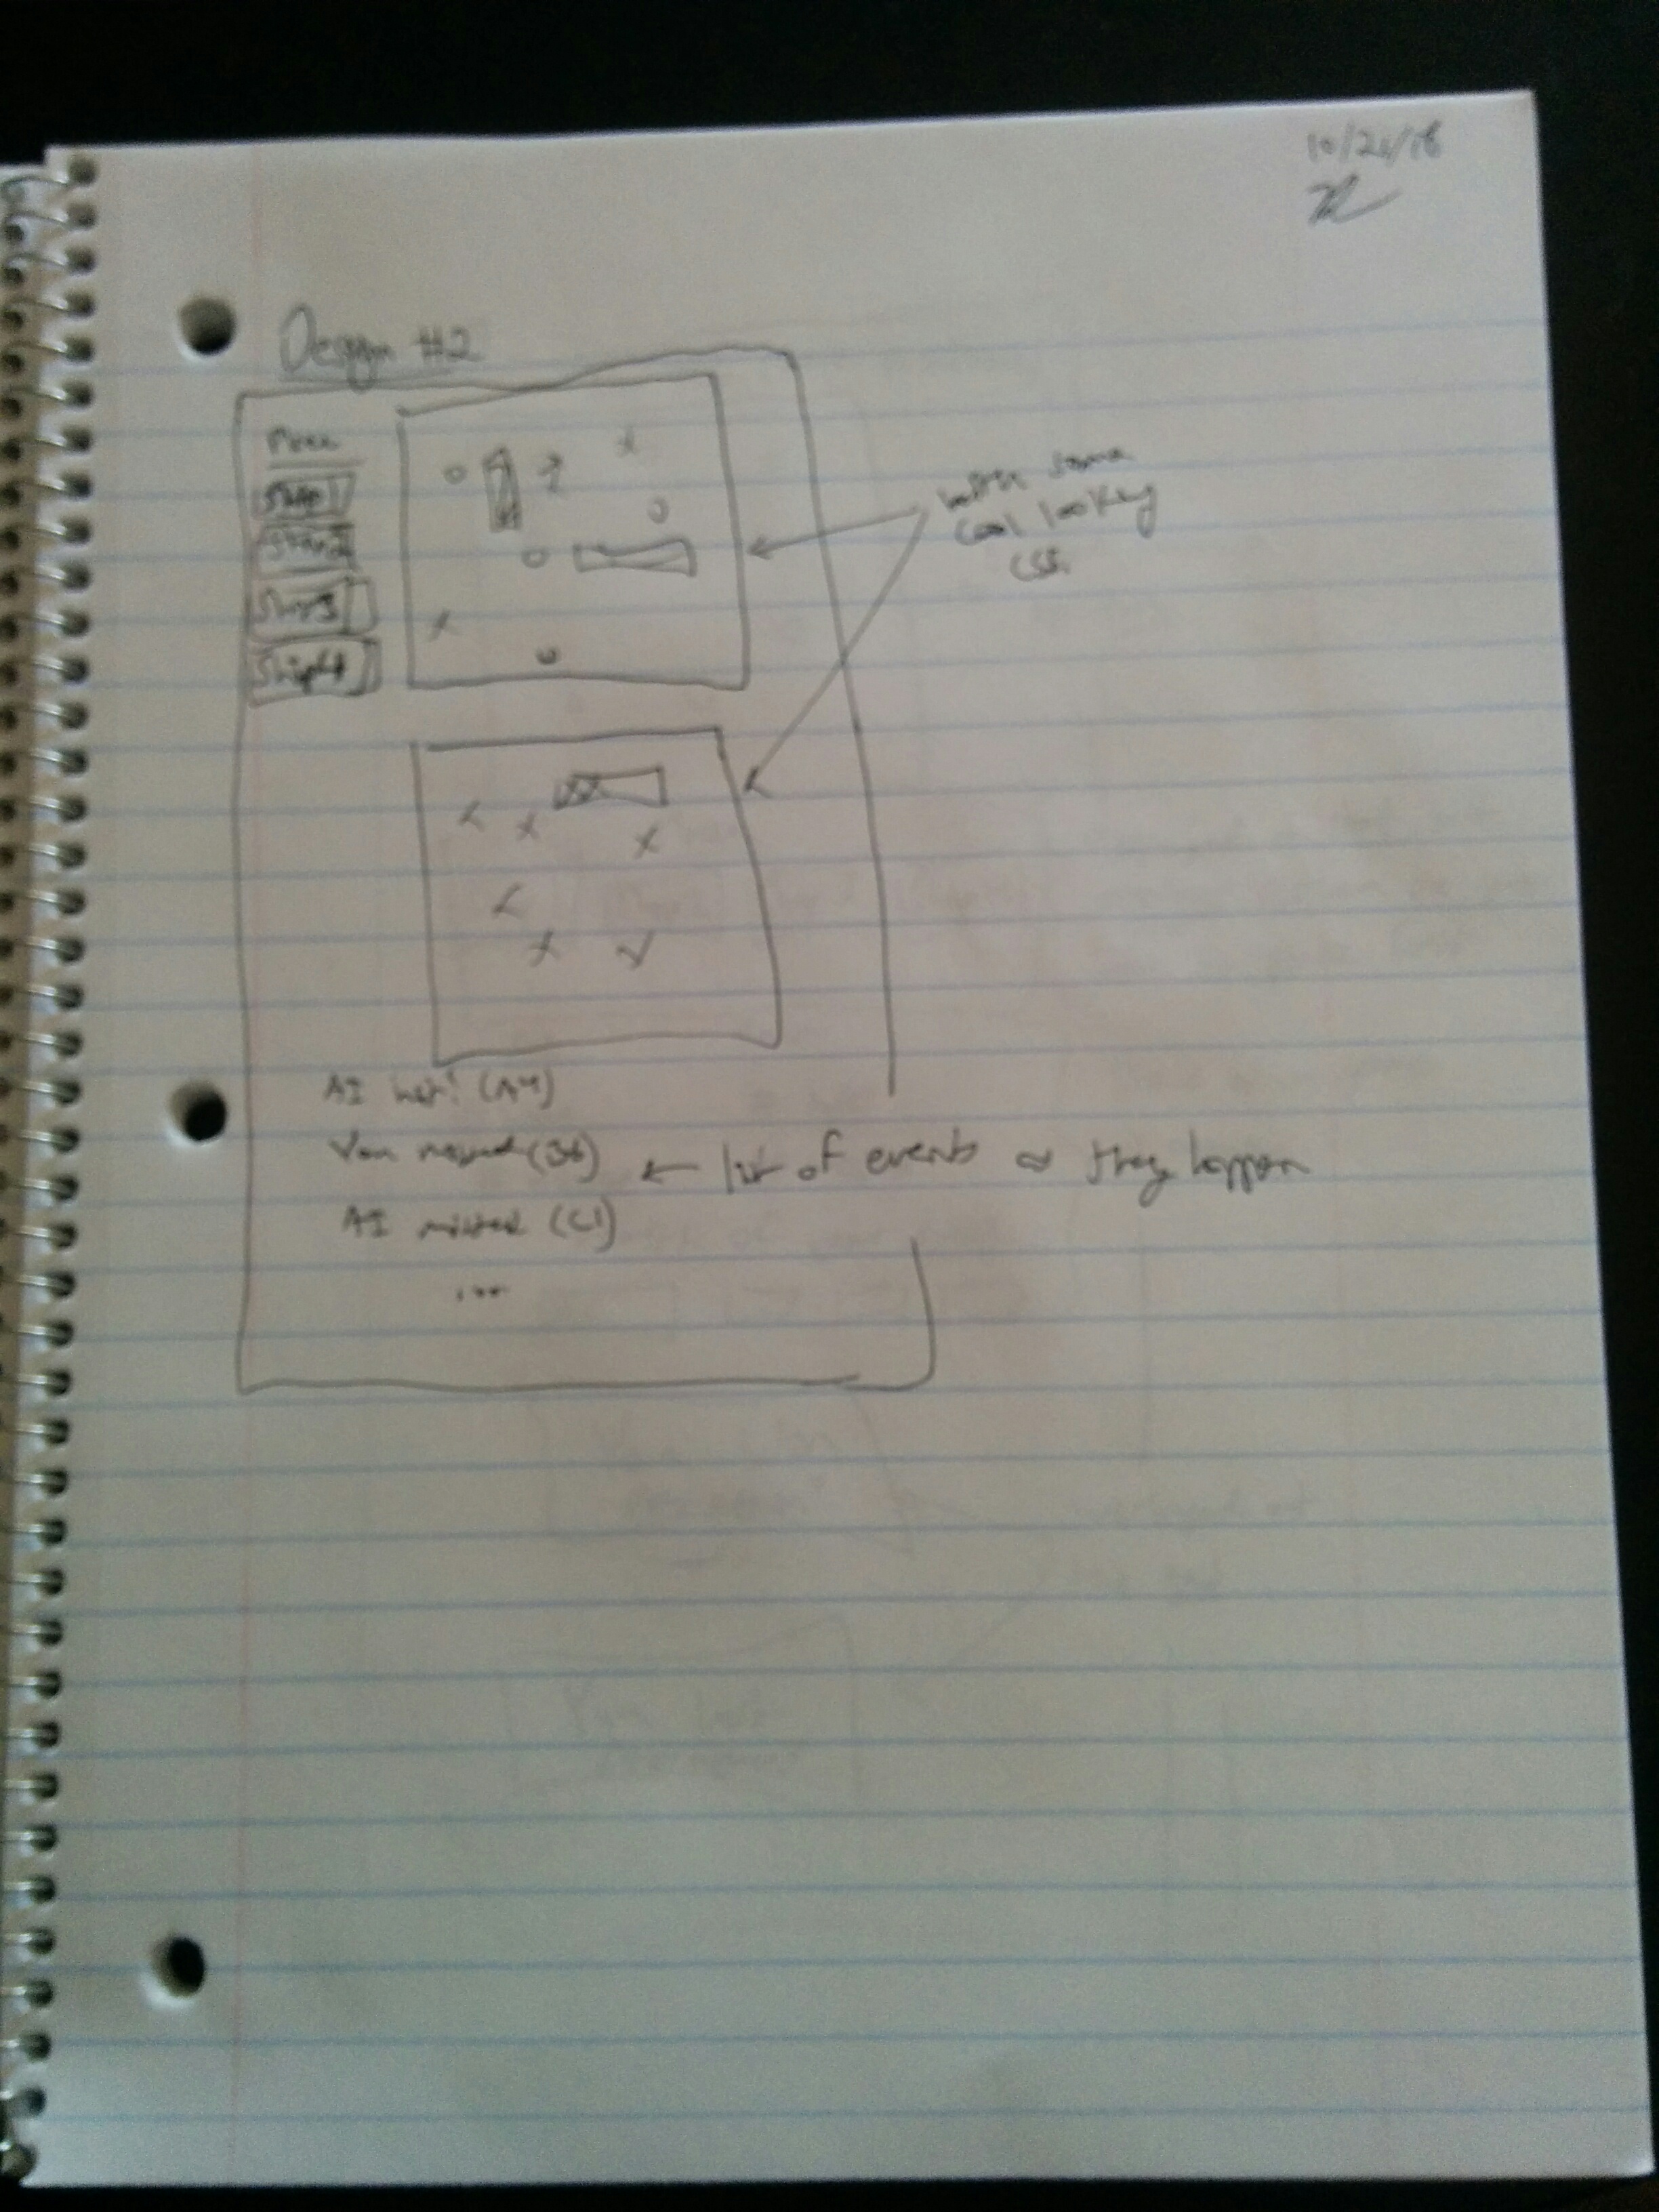 Design #2
Ship1
Ship2
Ship3
Ship4
with some
cool looking
CSS.
AI hit! (A4)
You missed (B6)
← list of events as they happen
AI missed (C1)
...